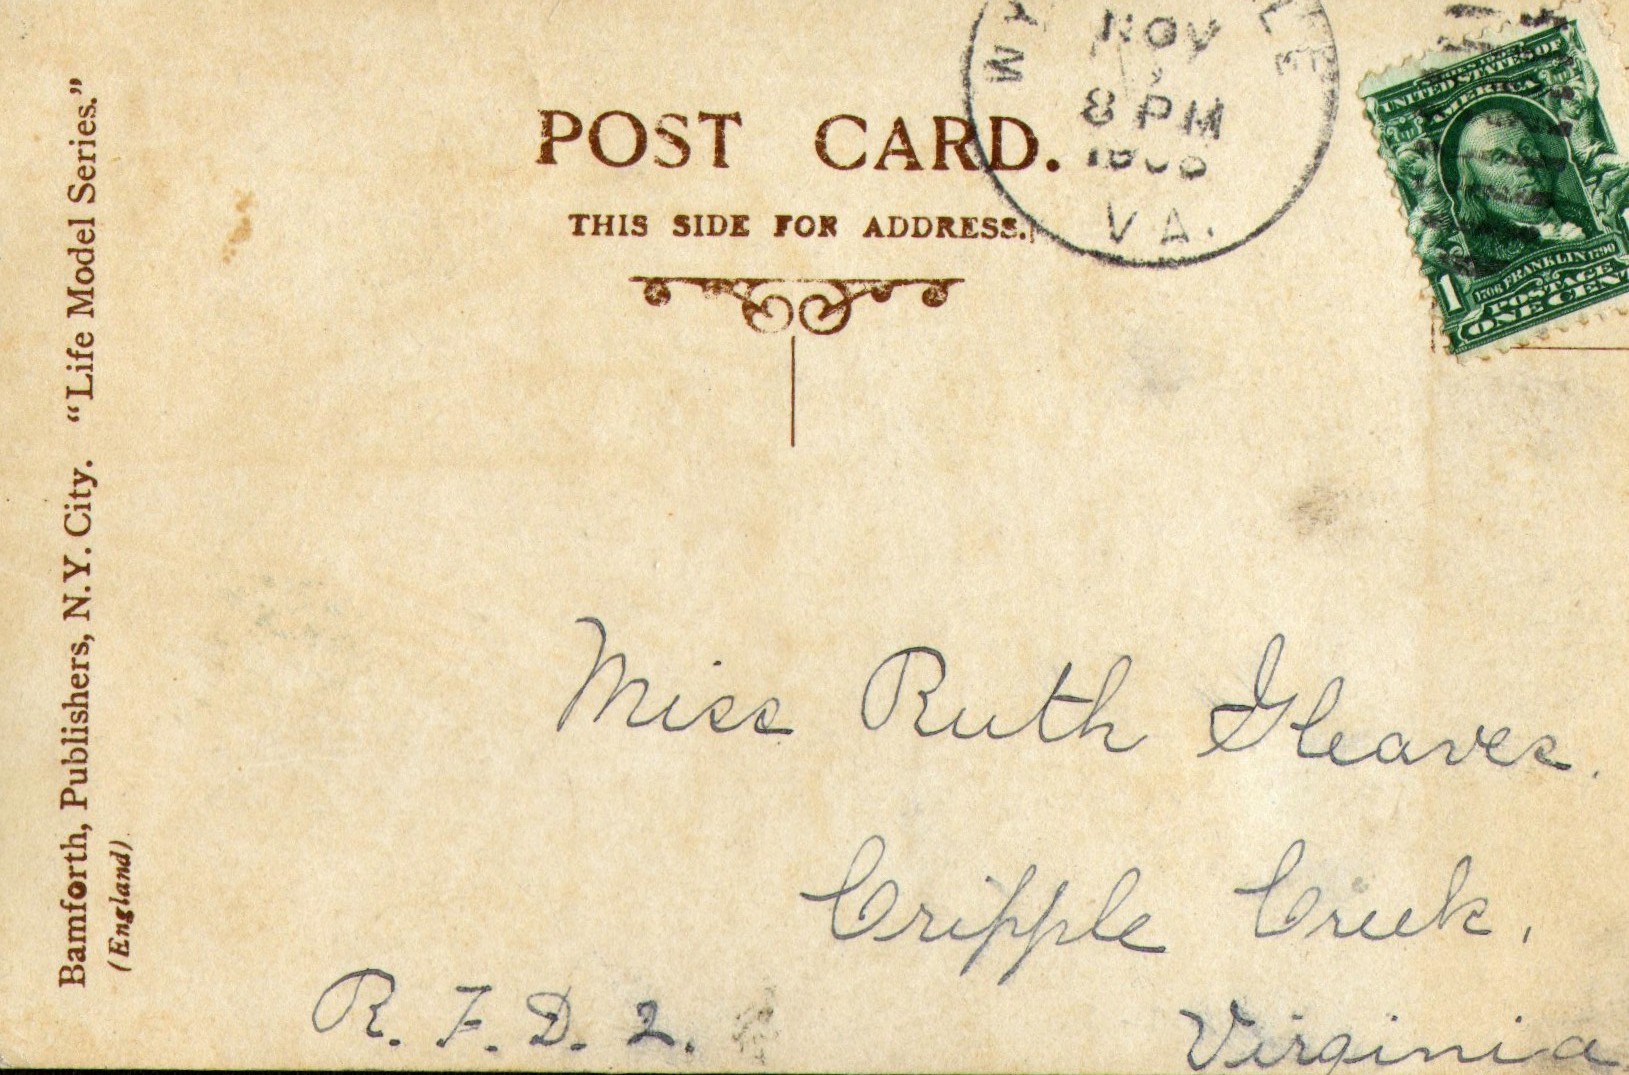 POST CARD.
THIS SIDE FOR ADDRESS.
NOV
8 PM
VA.
UNITED STATES OF
AMERICA
1706 FRANKLIN 1790
POSTAGE
1
ONE CENT
Bamforth, Publishers, N.Y. City. "Life Model Series."
(England)
Miss Ruth Gleaves.
Cripple Creek,
R. F. D. 2.
Virginia